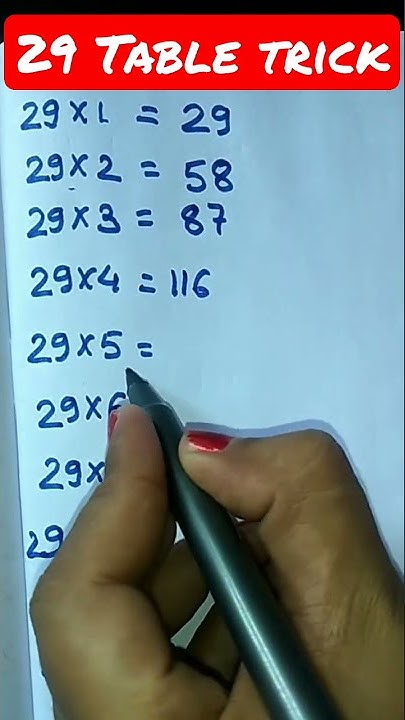 29 TABLE TRICK
29×1 = 29
29×2 = 58
29×3 = 87
29×4 = 116
29×5 =
29×6
29×
29